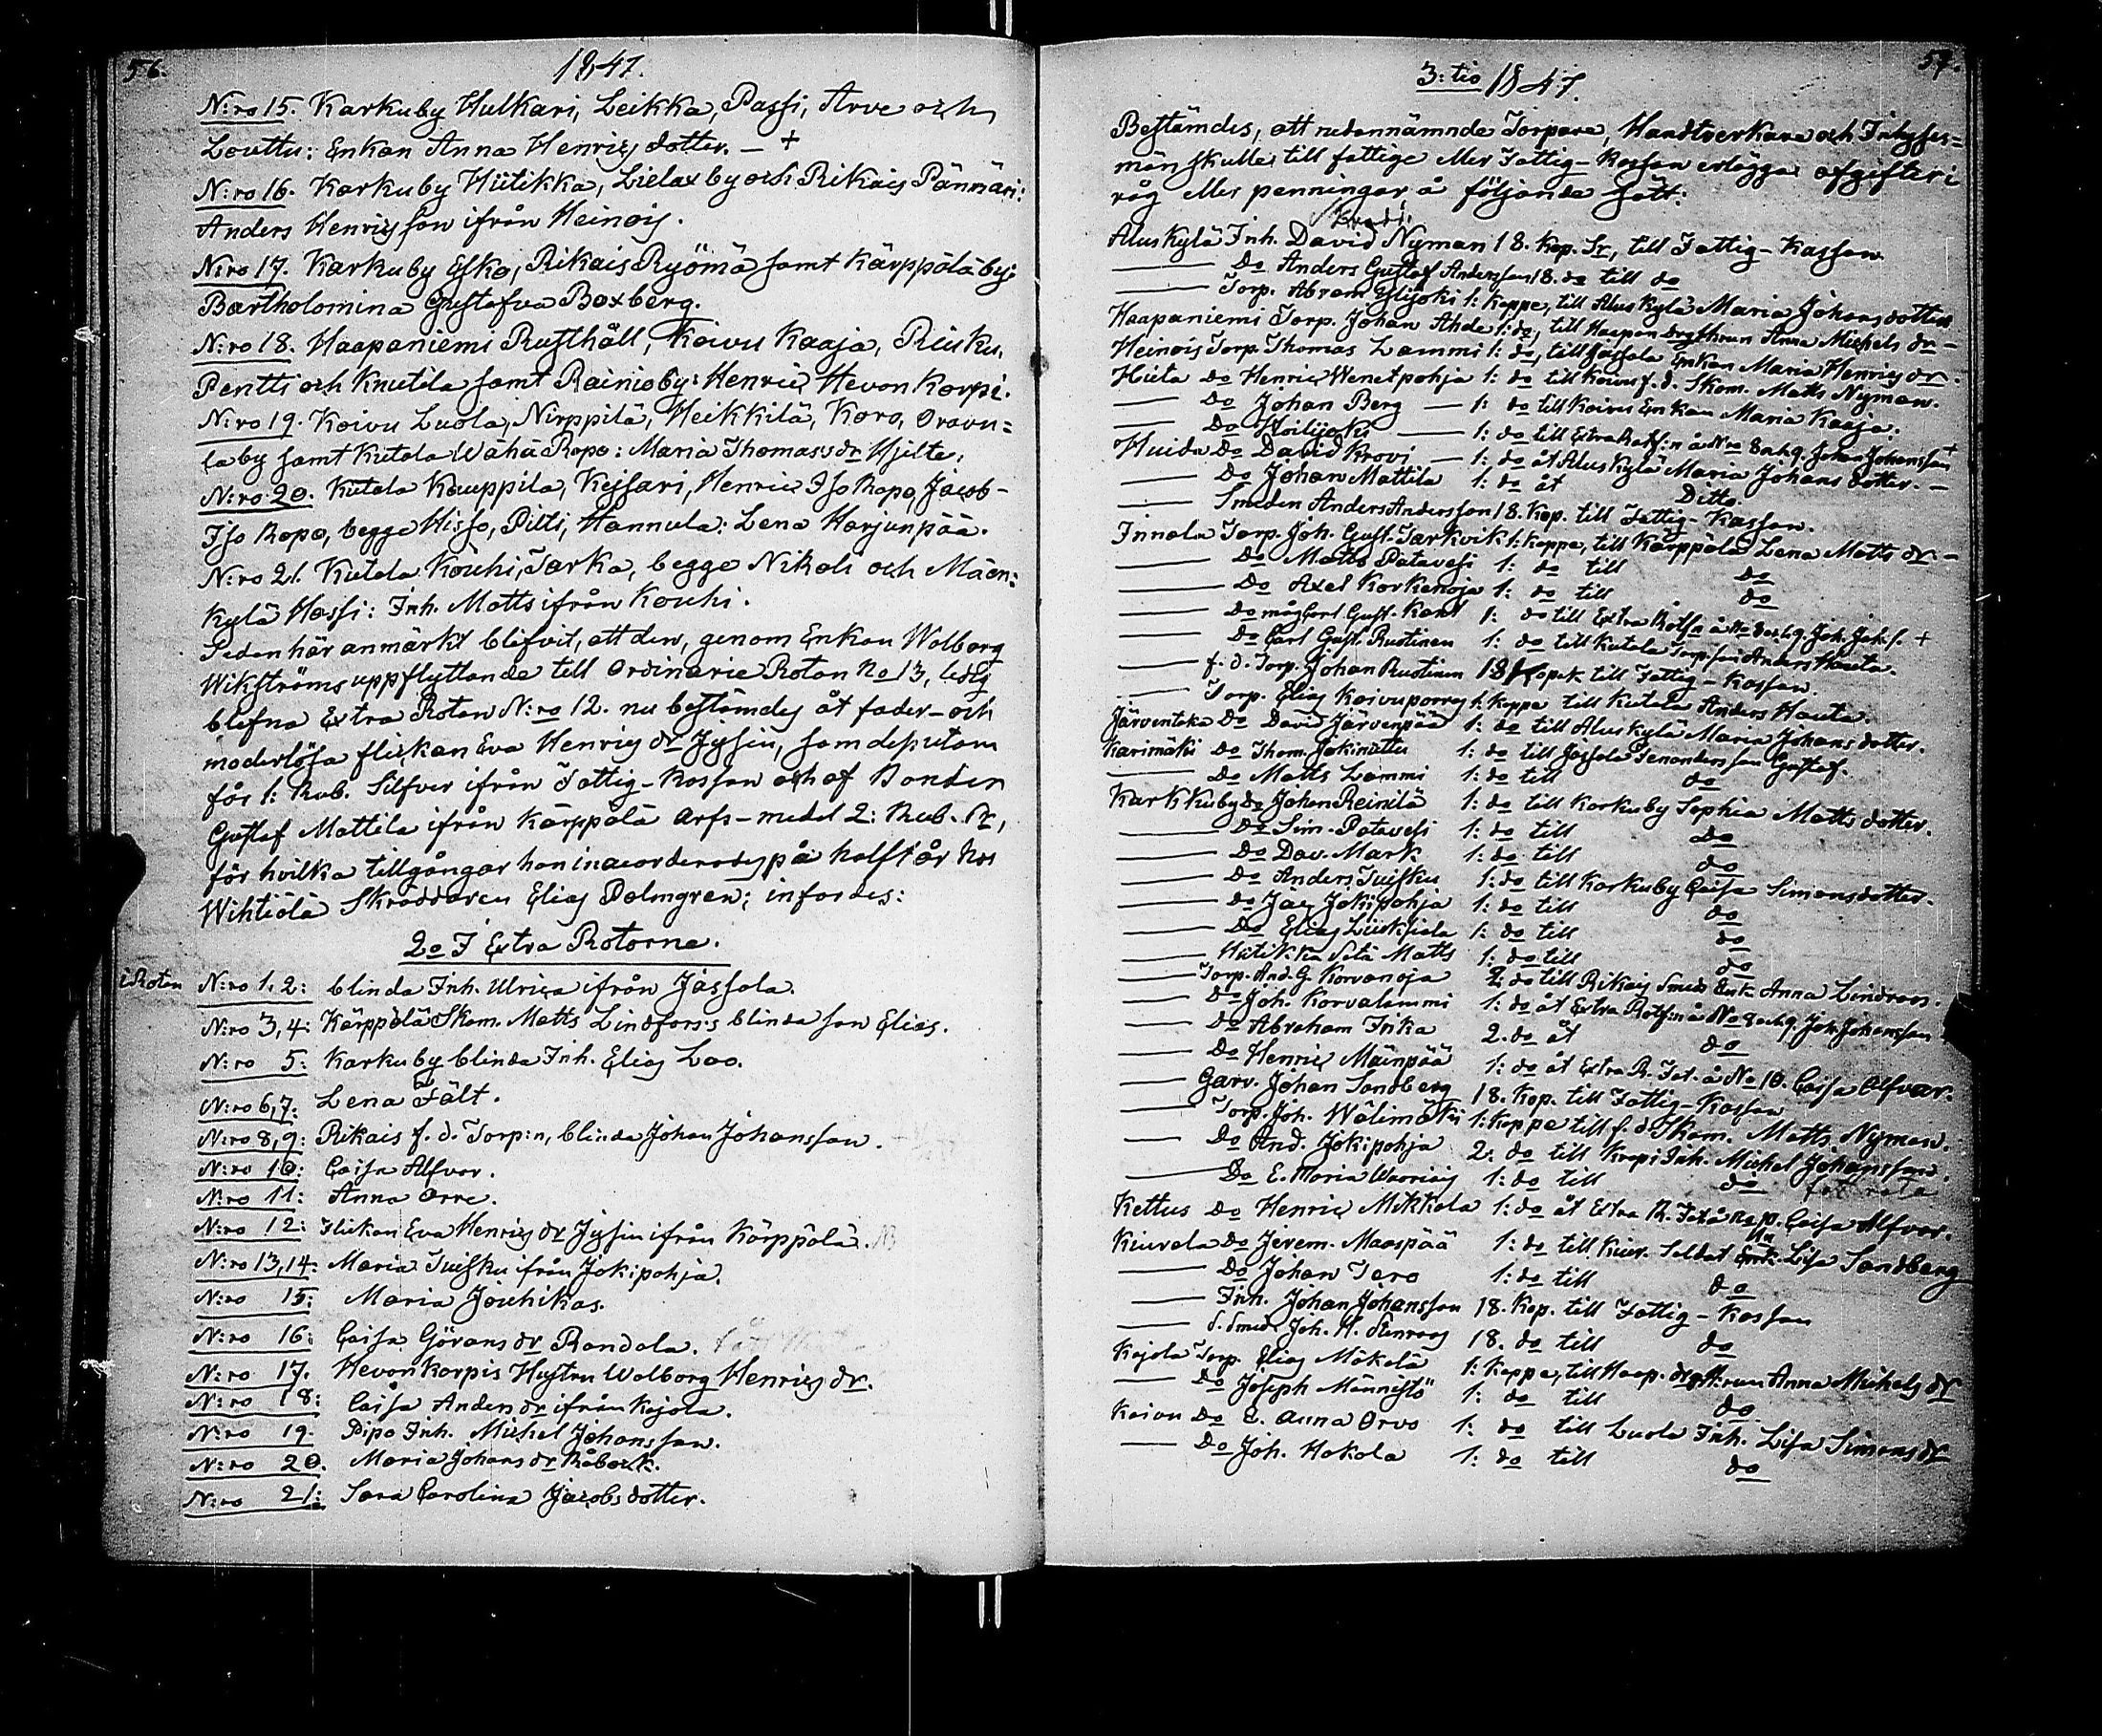 56.
1847.
N:ro 15. Karkuby Hulkari, Leikka, Passi, Arve och
Louttu: Enkan Anna Henricsdotter. – +
N:ro 16. Karkuby Hiitikka, Lielax by och Rikais Pännäri:
Anders Henricsson ifrån Heinois.
N:ro 17. Karkuby Esko, Rikais Ryömä samt Kärppälä by:
Bartholomina Gustafva Boxberg.
N:ro 18. Haapaniemi Rusthåll, Koivu Kaaja, Riuku,
Pentti och Knutila samt Rainio by: Henric Hevonkorpi.
N:ro 19. Koivu Luola, Nirppilä, Heikkilä, Koro, Oravu=
la by samt Kutala Wähä Ropo: Maria Thomasdr Hjelte.
N:ro 20. Kutala Kauppila, Kejsari, Henric Iso Ropo, Jacob
Iso Ropo, begge Hisso, Pitti, Hannula: Lena Harjunpää.
N:ro 21. Kutala Kouhi, Tarka, begge Nikali och Mäen:
kylä Hassi: Inh. Matts ifrån Kouhi.
Sedan här anmärkt blifvit, att den, genom Enkan Wolborg
Wikströms uppflyttande till Ordinarie Rotan No 13, ledig
blefna Extra Rotan N:ro 12. nu bestämdes åt fader- och
moderlösa flickan Eva Henrics dr Jysin, som dessutom
får 1: Rub. Silfver ifrån Fattig-Kassan och af Bonden
Gustaf Mattila ifrån Kärppälä arfs-medel 2: Rub. Sr,
för hvilka tillgångar hon inaccorderades på halft år hos
Wihtiälä Skräddaren Elias Palmgren; infördes:
2o I Extra Rotorne.
i Rotan N:ro 1, 2: blinda Inh. Ulrica ifrån Jassala.
N:ro 3, 4: Kärppälä Skom. Matts Lindfors's blinda son Elias.
N:ro 5: Karkuby blinda Inh. Elias Loo.
N:ro 6, 7: Lena Fält.
N:ro 8, 9: Rikais f. d. Torp:n, blinda Johan Johansson.
N:ro 10: Caisa Alfvar.
N:ro 11: Anna Orre.
N:ro 12: Flickan Eva Henrics dr Jysin ifrån Kärppälä.
N:ro 13, 14: Maria Tuisku ifrån Jokipohja.
N:ro 15: Maria Jouhikas.
N:ro 16: Caisa Görans dr Randala.
N:ro 17. Hevonkorpis Hustru Wolborg Henrics dr.
N:ro 18: Caisa Anders dr ifrån Kojola.
N:ro 19. Pipo Inh. Michel Johansson.
N:ro 20. Maria Johans dr Råback.
N:ro 21: Sara Carolina Jacobsdotter.
57.
3:tio 1847.
Bestämdes, att nedannämnde Torpare, Handtverkare och Inhyses=
män skulle till fattige eller Fattig-Kassan erlägga afgifter i
råg eller penningar å följande sätt:
Aluskylä Inh. David Nyman 18. Kop. Sr, till Fattig-Kassan.
—— Do Anders Gustaf Andersson 18. do till do
—— Torp. Abram Ylijoki 1: Kappe, till Aluskylä Maria Johansdotter
Haapaniemi Torp. Johan Ahde 1: do, till Haapan. Anna Michels dr –
Heinois Torp. Thomas Lammi 1: do, till Jassala Enkan Maria Henrics dr.
Hiuta Do Henric Wenetpohja 1: do till Koivu f. d. Skom. Matts Nyman.
—— Do Johan Berg —— 1: do till Koivu Enkan Maria Kaaja.
—— Do Koilijoki —— 1: do till Extra Rotf:n å N:ro 8 och 9. Johan Johansson +
Huida Do David Krovi — 1: do åt Aluskylä Maria Johansdotter. –
—— Do Johan Mattila 1: do åt Ditto.
—— Smeden Anders Andersson 18. Kop. till Fattig-Kassan.
Innala Torp. Joh. Gust. Tarkvik 1: Kappe, till Kärppälä Lena Matts dr –
—— Do Matts Patavesi 1: do till do
—— Do Axel Korkenoja 1: do till do
—— Do måg Carl Gust. Kant 1: do till Extra Rotfn å No 8 och 9. Joh. Joh. s. +
—— Do Carl Gust. Ruotinen 1: do till Kutala Anders Hauta.
—— f. d. Torp. Johan Ruotinen 18 Kopek till Fattig-Kassan.
—— Torp. Elias Koivuporras 1. Kappe till Kutala Anders Hauta.
Järventaka Do David Järvenpää 1: do till Aluskylä Maria Johansdotter.
Karimäki Do Thom. Jokiniittu 1: do till Jassala Gustaf.
—— Do Matts Lammi 1: do till do
Karkkuby do Johan Reinilä 1: do till Karkuby Sophia Mattsdotter.
—— Do Sim. Patavesi 1: do till do
—— Do Dav. Mark 1: do till do
—— Do Anders Tuisku 1: do till Karkuby Caisa Simonsdotter.
—— do Jac. Jokipohja 1: do till do
—— Do Elias Liuksiala 1: do till do
—— Hiitikka Setä Matts 1: do till do
—— Torp. And. G. Korvanoja 2. do till Rikais Smeds Enk. Anna Lindroos.
—— Do Joh. Korvalammi 1: do åt Extra Rotf:n å No 8 och 9. Joh. Johansson
—— Do Abraham Frika 2. do åt do
—— Do Henric Mäinpää 1: do åt Extra R. Fat. å No 10. Caisa Alfvar.
—— Garv. Johan Sandberg 18. Kop. till Fattig-Kassan
—— Torp. Joh. Wälimäki 1: Kappe till f. d. Skom. Matts Nyman.
—— Do And. Jokipohja 2. do till Krapi Inh. Michel Johansson.
—— Do E. Maria 1: do till do
Kettus Do Henric Mikkola 1: do åt Extra R. Fat. å No 10. Caisa Alfvar.
Kiurala Do Jerem. Maaspää 1: do till Kiur. Soldat Lisa Sandberg
—— Do Johan Tero 1: do till do
—— Inh. Johan Johansson 18. Kop. till Fattig-Kassan
—— S. Smed. Joh. H. Stenroos 18. do till do
Kojola Torp. Elias Mäkelä 1: Kappe, till Haap. Anna Michels dr
—— Do Joseph Männistö 1: do till do
Koivu Do E. Anna Orvo 1: do till Luola Inh. Lisa Simons dr
—— Do Joh. Hakola 1: do till do